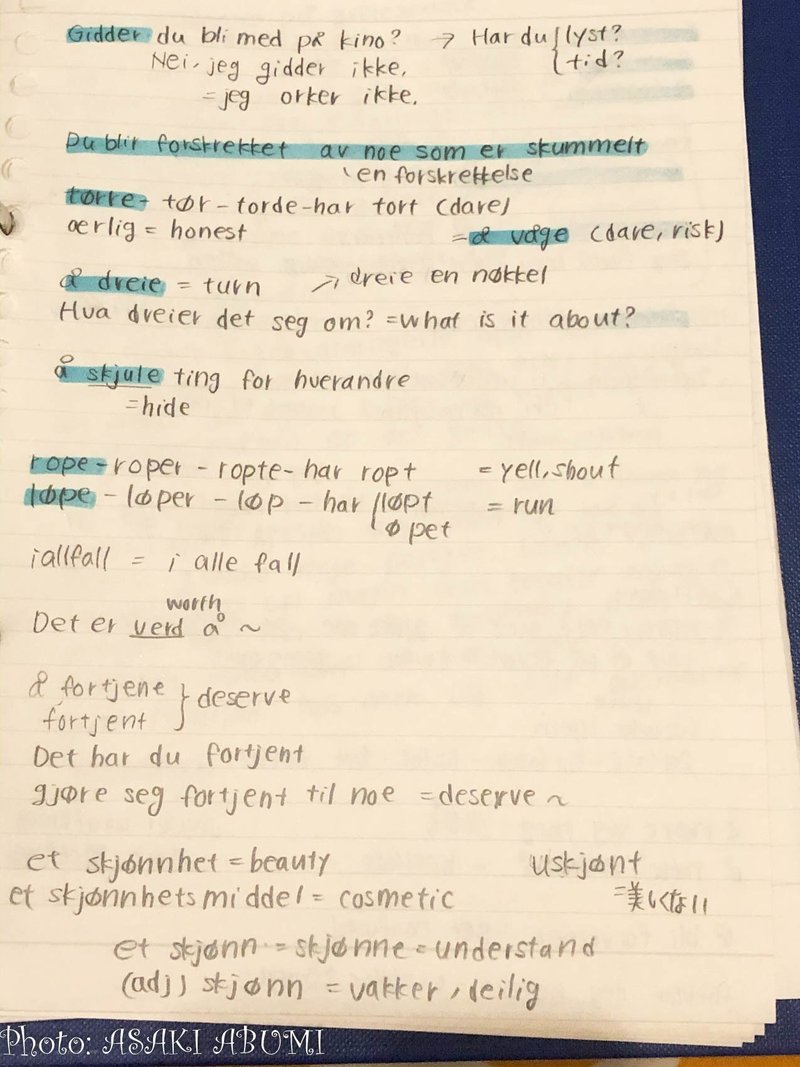 Gidder du bli med på kino? → Har du { lyst?
Nei, jeg gidder ikke. { tid?
= jeg orker ikke.
Du blir forskrekket av noe som er skummelt
en forskrekkelse
tørre - tør - torde - har tort (dare)
ærlig = honest = å våge (dare, risk)
å dreie = turn → dreie en nøkkel
Hva dreier det seg om? = what is it about?
å skjule ting for hverandre
= hide
rope - roper - ropte - har ropt = yell, shout
løpe - løper - løp - har { løpt = run
øpet
iallfall = i alle fall
worth
Det er verd å ~
å fortjene } deserve
fortjent
Det har du fortjent
gjøre seg fortjent til noe = deserve ~
et skjønnhet = beauty uskjønt
et skjønnhetsmiddel = cosmetic =美しくない
et skjønn = skjønne = understand
(adj) skjønn = vakker, deilig
Photo: ASAKI ABUMI